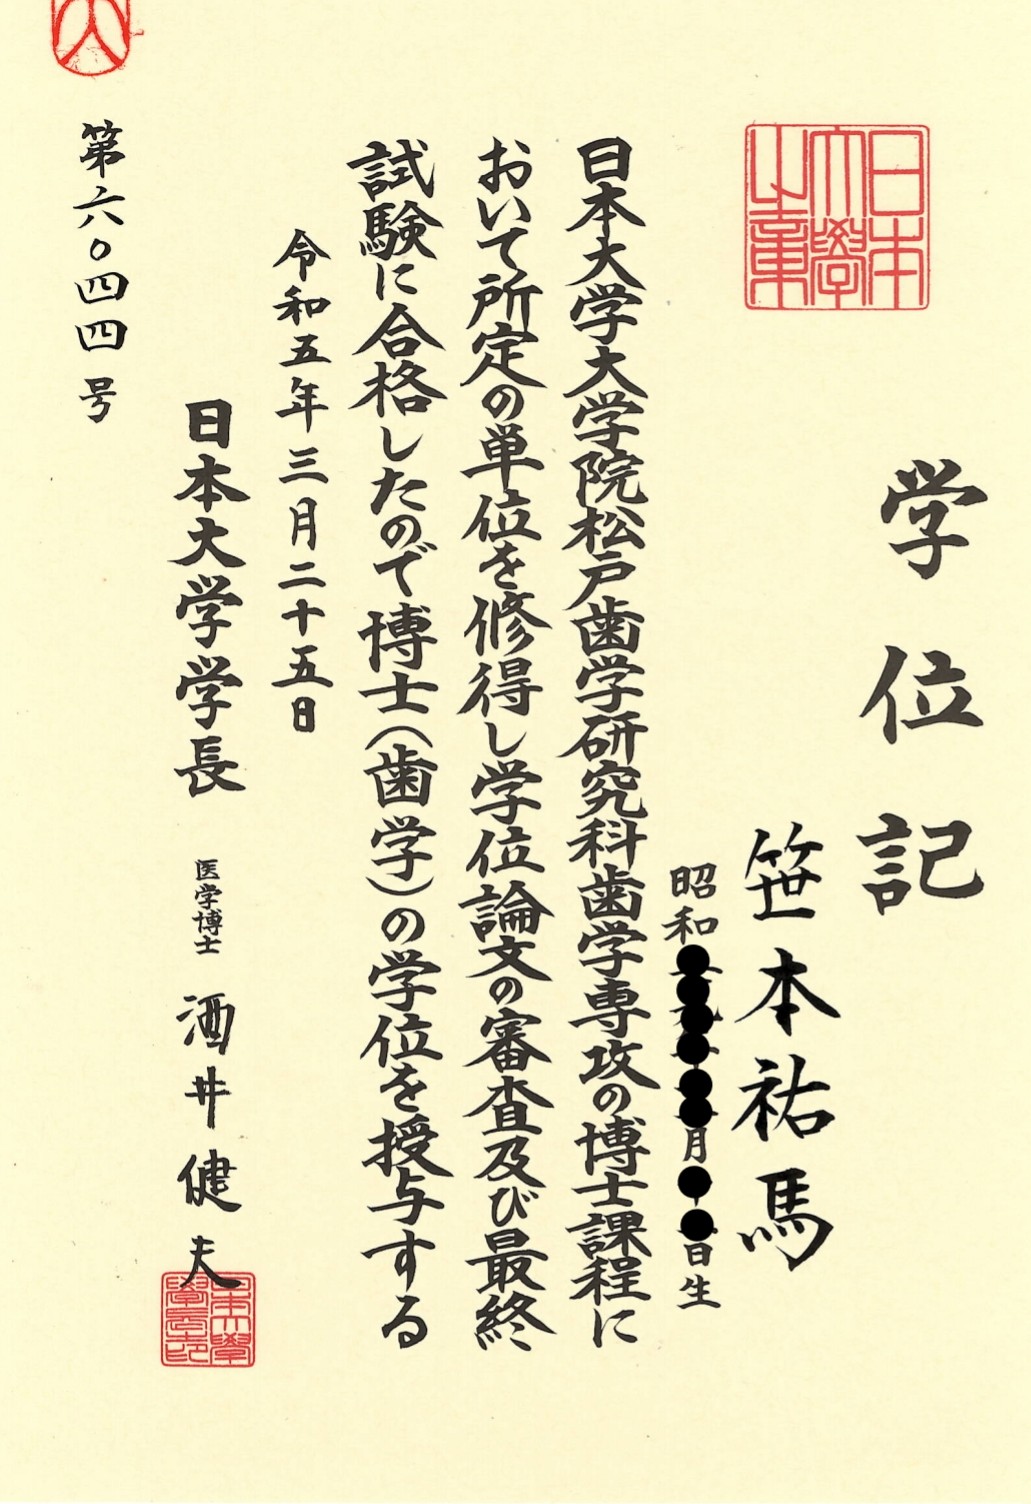 学位記
笹本祐馬
昭和 月 日生
日本大学大学院松戸歯学研究科歯学専攻の博士課程に
おいて所定の単位を修得し学位論文の審査及び最終
試験に合格したので博士(歯学)の学位を授与する
令和五年三月二十五日
日本大学学長 医学博士 酒井健夫
第六〇四四号
日本
大學
之章